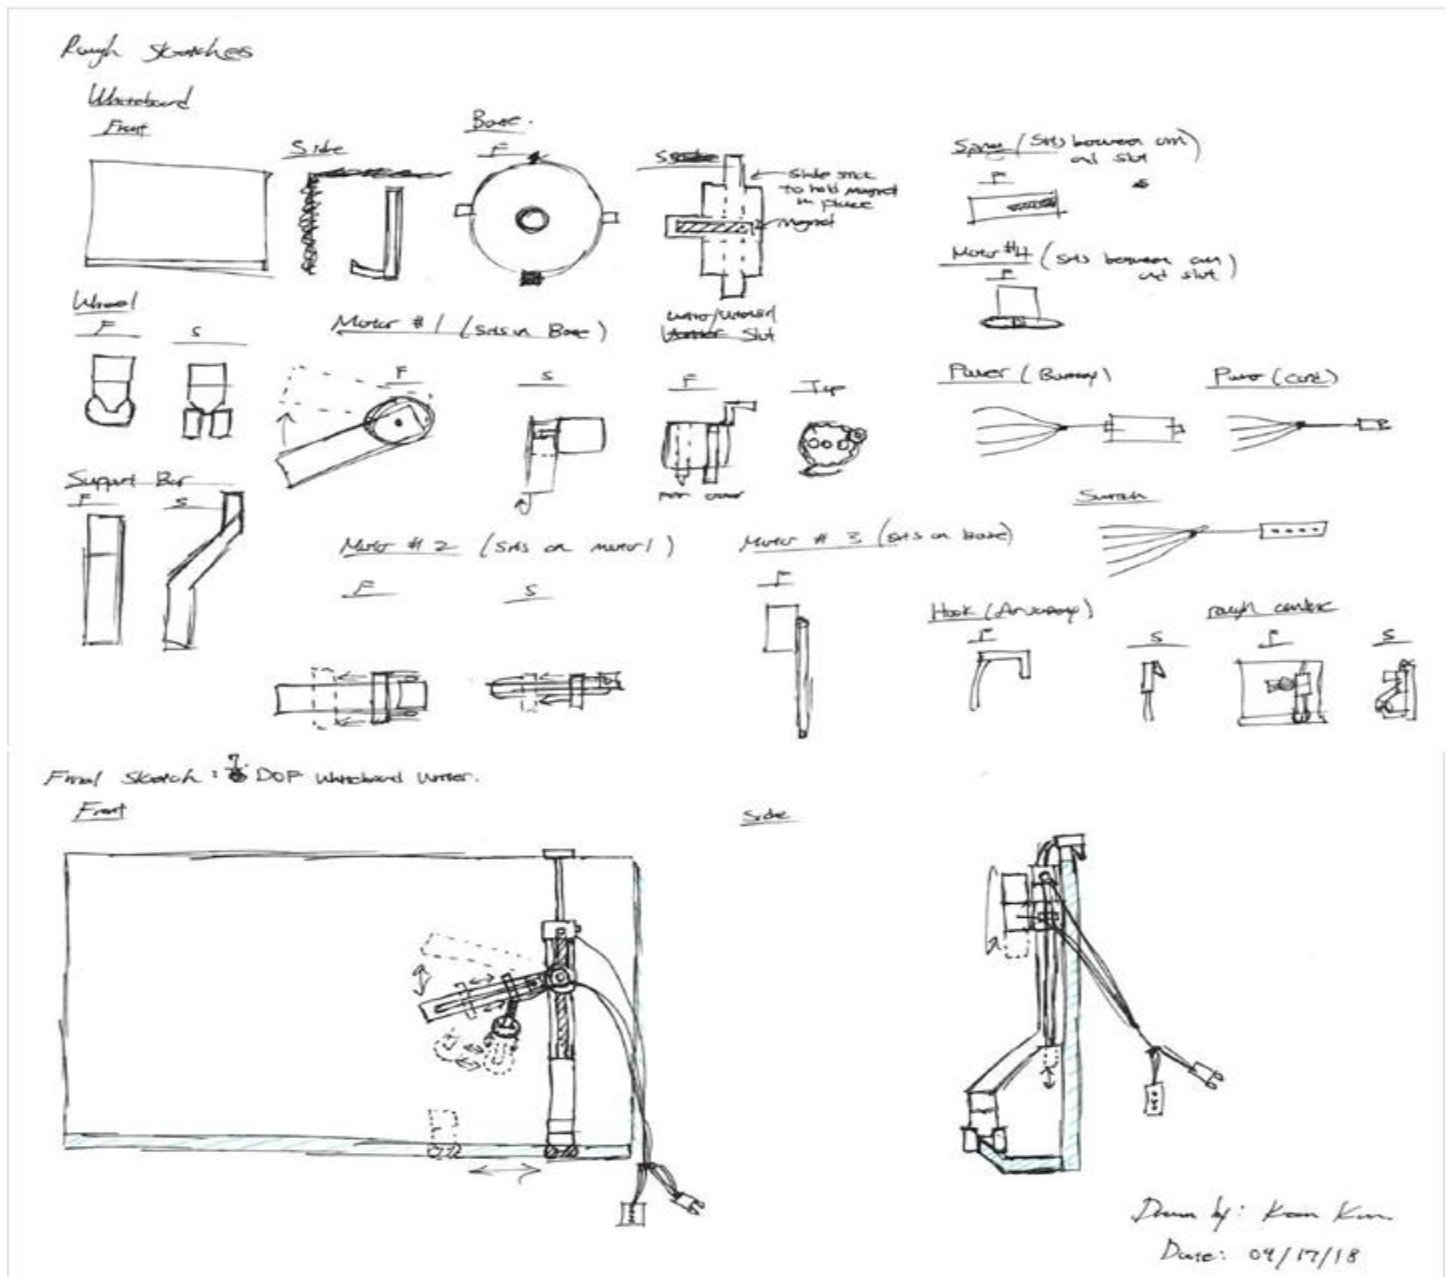 Rough Sketches
Whiteboard
Front
Side
Base.
F
S
Slide stick
to hold magnet
in place
magnet
Spring (Sits between arm
and slot)
F
Motor #4 (sits between arm
and slot)
F
Wheel
F
S
Motor #1 (Sits on Base)
F
S
Slot
F
Top
Power (Battery)
Power (Cord)
Support Bar
F
S
Motor #2 (sits on motor 1)
F
S
Motor #3 (sits on Base)
F
Switch
Hook (
F
S
rough
F
S
Final Sketch: 7 DOF Whiteboard Writer.
Front
Side
Drawn by:
Date: 09/17/18